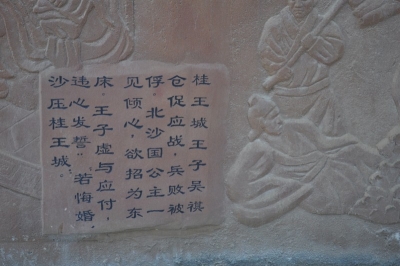 桂王城王子吴祺
仓促应战，兵败被
俘。北沙国公主一
见倾心，欲招为东
床。王子虚与应付，
违心发誓：若悔婚，
沙压桂王城。